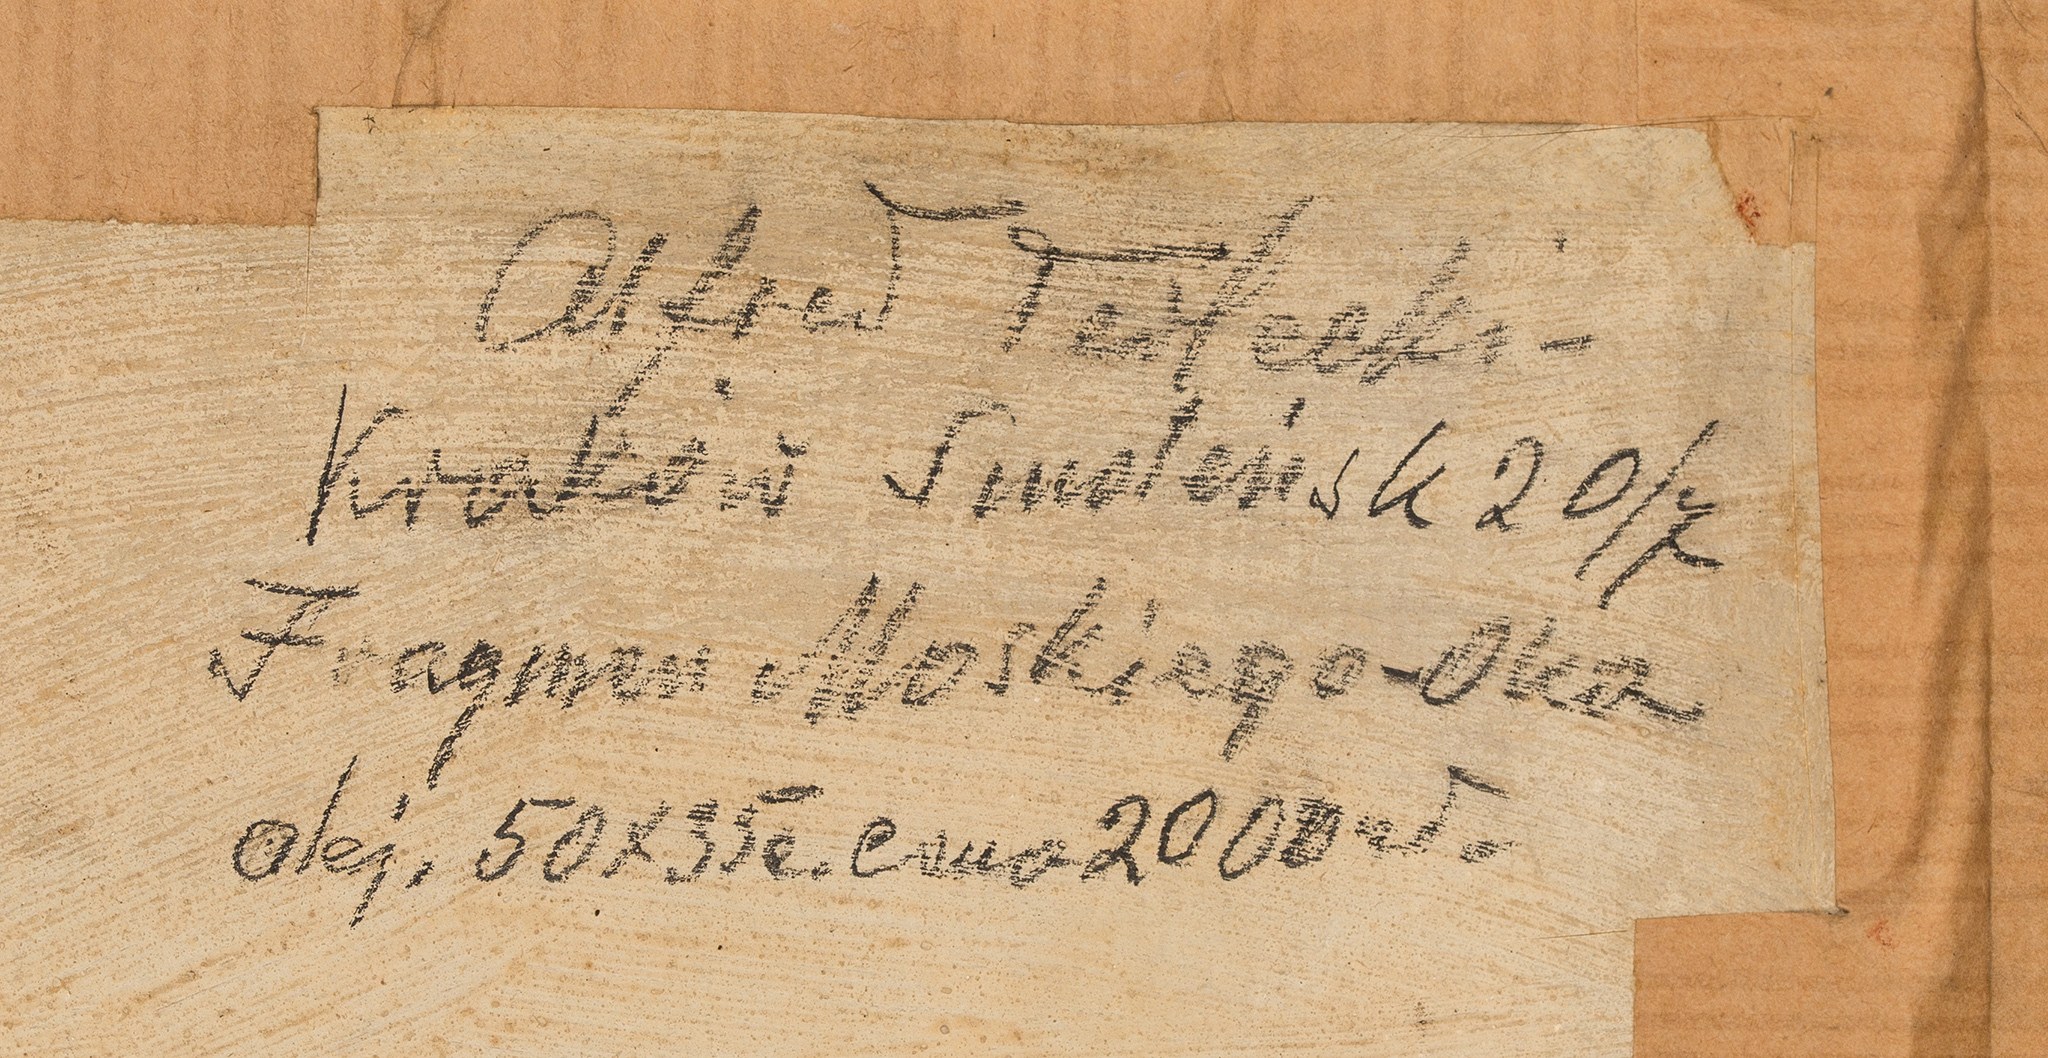 Alfred Terlecki -
Kraków Smoleńsk 20/7
Fragmen Morskiego-Oka
olej. 50x35c. cena 2000 zł.